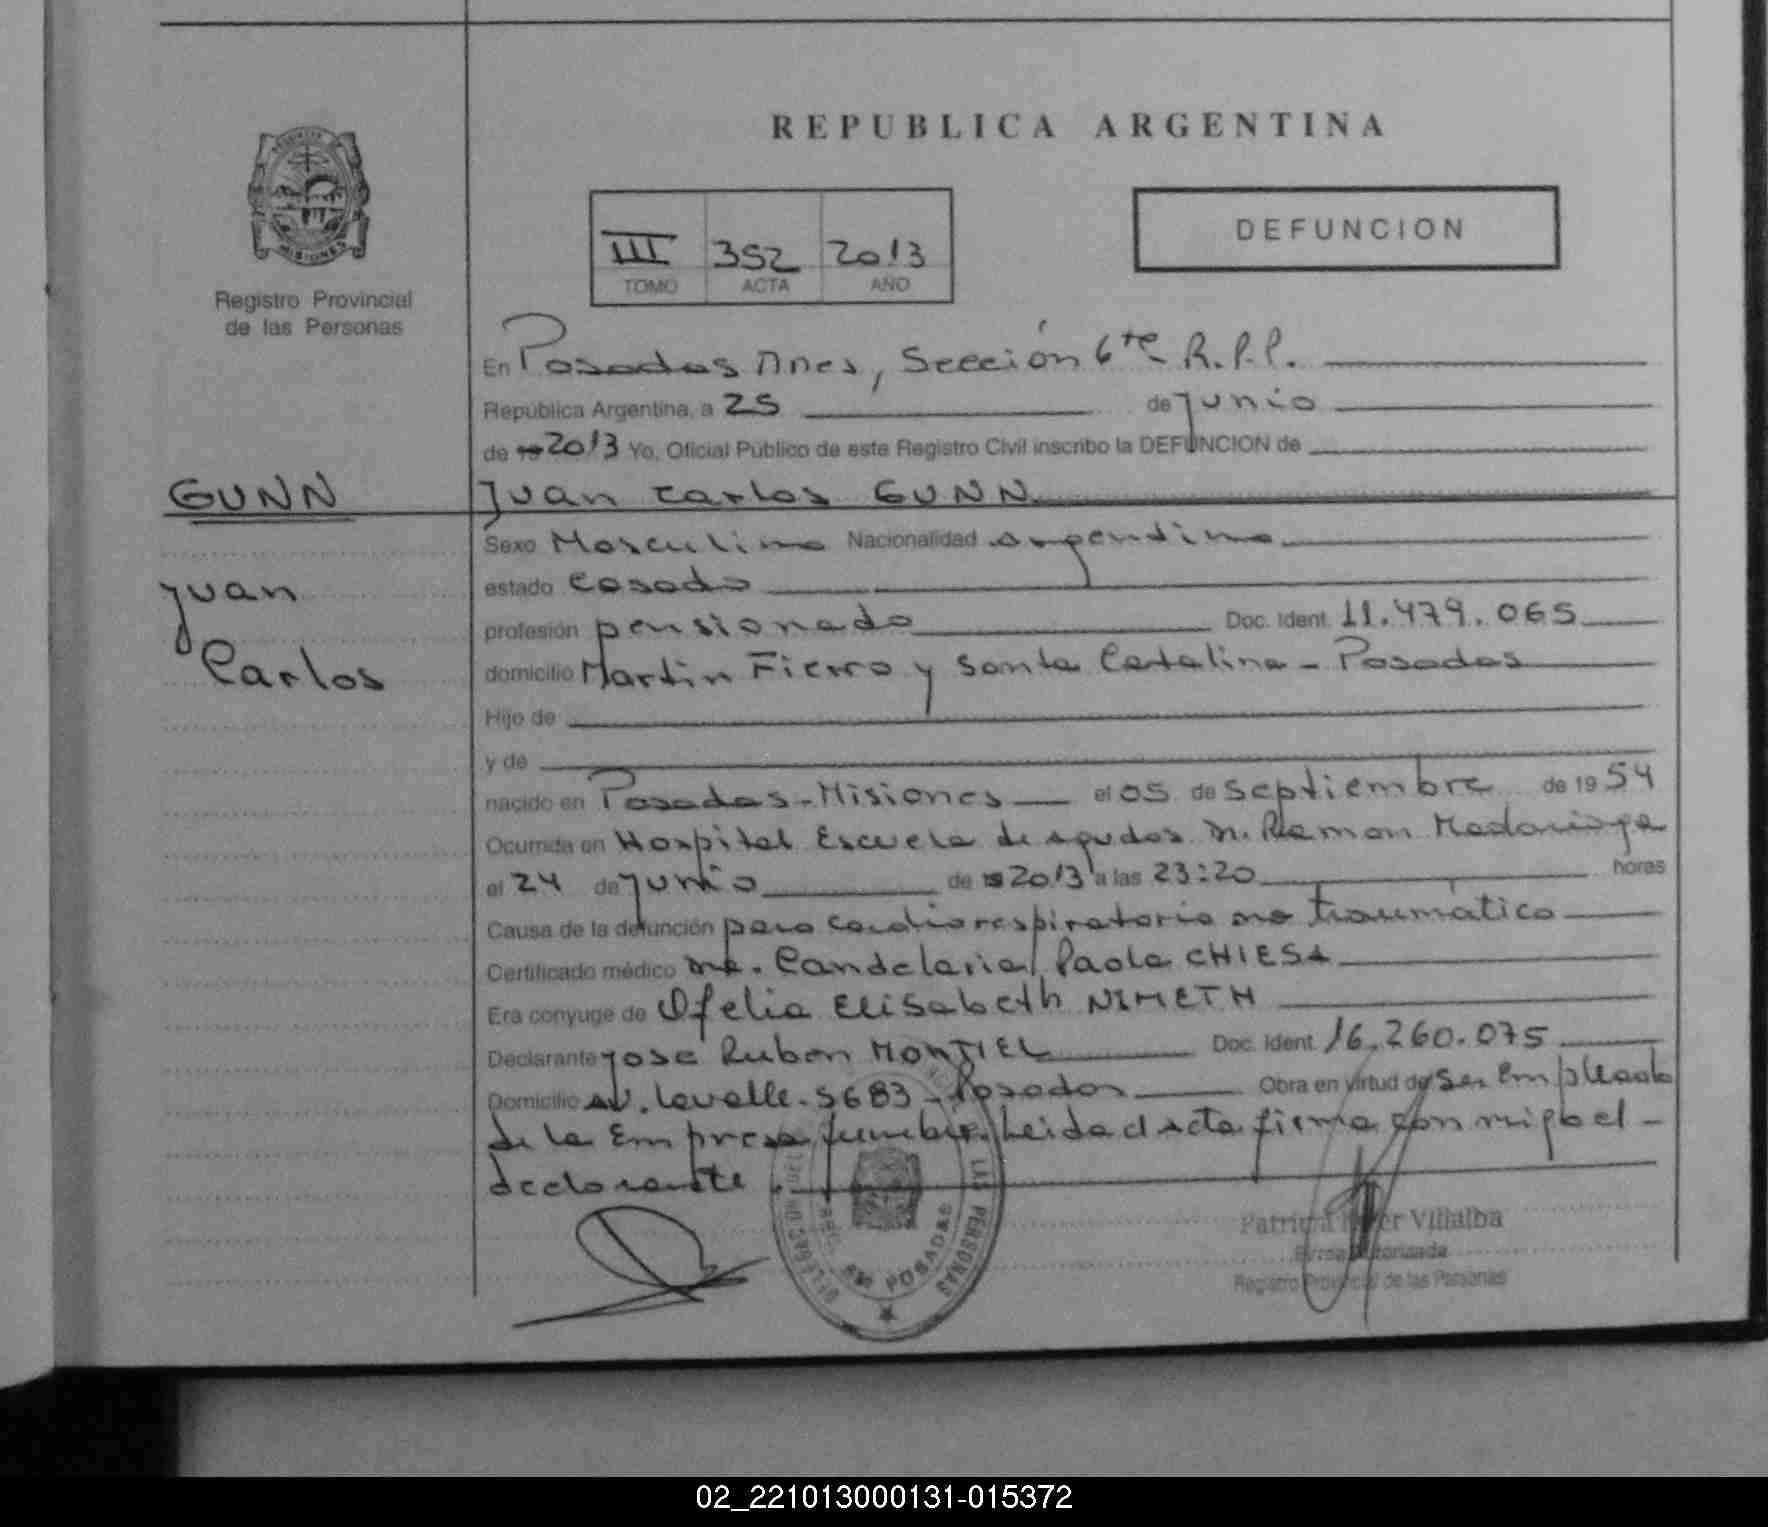 REPUBLICA ARGENTINA
MISIONES
Registro Provincial
de las Personas
III 352 2013
TOMO ACTA AÑO
DEFUNCION
En Posadas Mnes, Sección 6ta R.P.P.
República Argentina, a 25 de junio
de 19 2013 Yo, Oficial Público de este Registro Civil inscribo la DEFUNCION de
GUNN
Juan Carlos GUNN
Juan
Carlos
Sexo Masculino Nacionalidad argentino
estado casado
profesión pensionado Doc. Ident. 11.479.065
domicilio Martin Fierro y Santa Catalina - Posadas
Hijo de
y de
nacido en Posadas-Misiones el 05 de septiembre de 19 54
Ocurrida en Hospital Escuela de agudos Dr. Ramon Madariaga
el 24 de junio de 19 2013 a las 23:20 horas
Causa de la defunción paro cardiorespiratorio no traumático
Certificado médico Candelaria Paola CHIESA
Era conyuge de Ofelia Elisabeth NIMETH
Declarante Jose Ruben MONTIEL Doc. Ident. 16.260.075
Domicilio Av. Lavalle. 5683 - Posadas Obra en virtud de Ser Empleado
de la Empresa funebre. Leida el acta firma con migo el -
declarante.
DELEGACION
LAS PERSONAS
POSADAS
Patricia Villalba
Firma Autorizada
Registro Provincial de las Personas
02_221013000131-015372